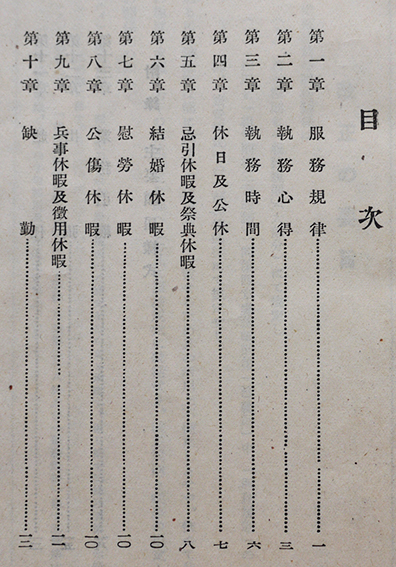 目次
第一章 服務規律……一
第二章 執務心得……三
第三章 執務時間……六
第四章 休日及公休……七
第五章 忌引休暇及祭典休暇……八
第六章 結婚休暇……一〇
第七章 慰勞休暇……一〇
第八章 公傷休暇……一〇
第九章 兵事休暇及徵用休暇……一一
第十章 缺勤……一三